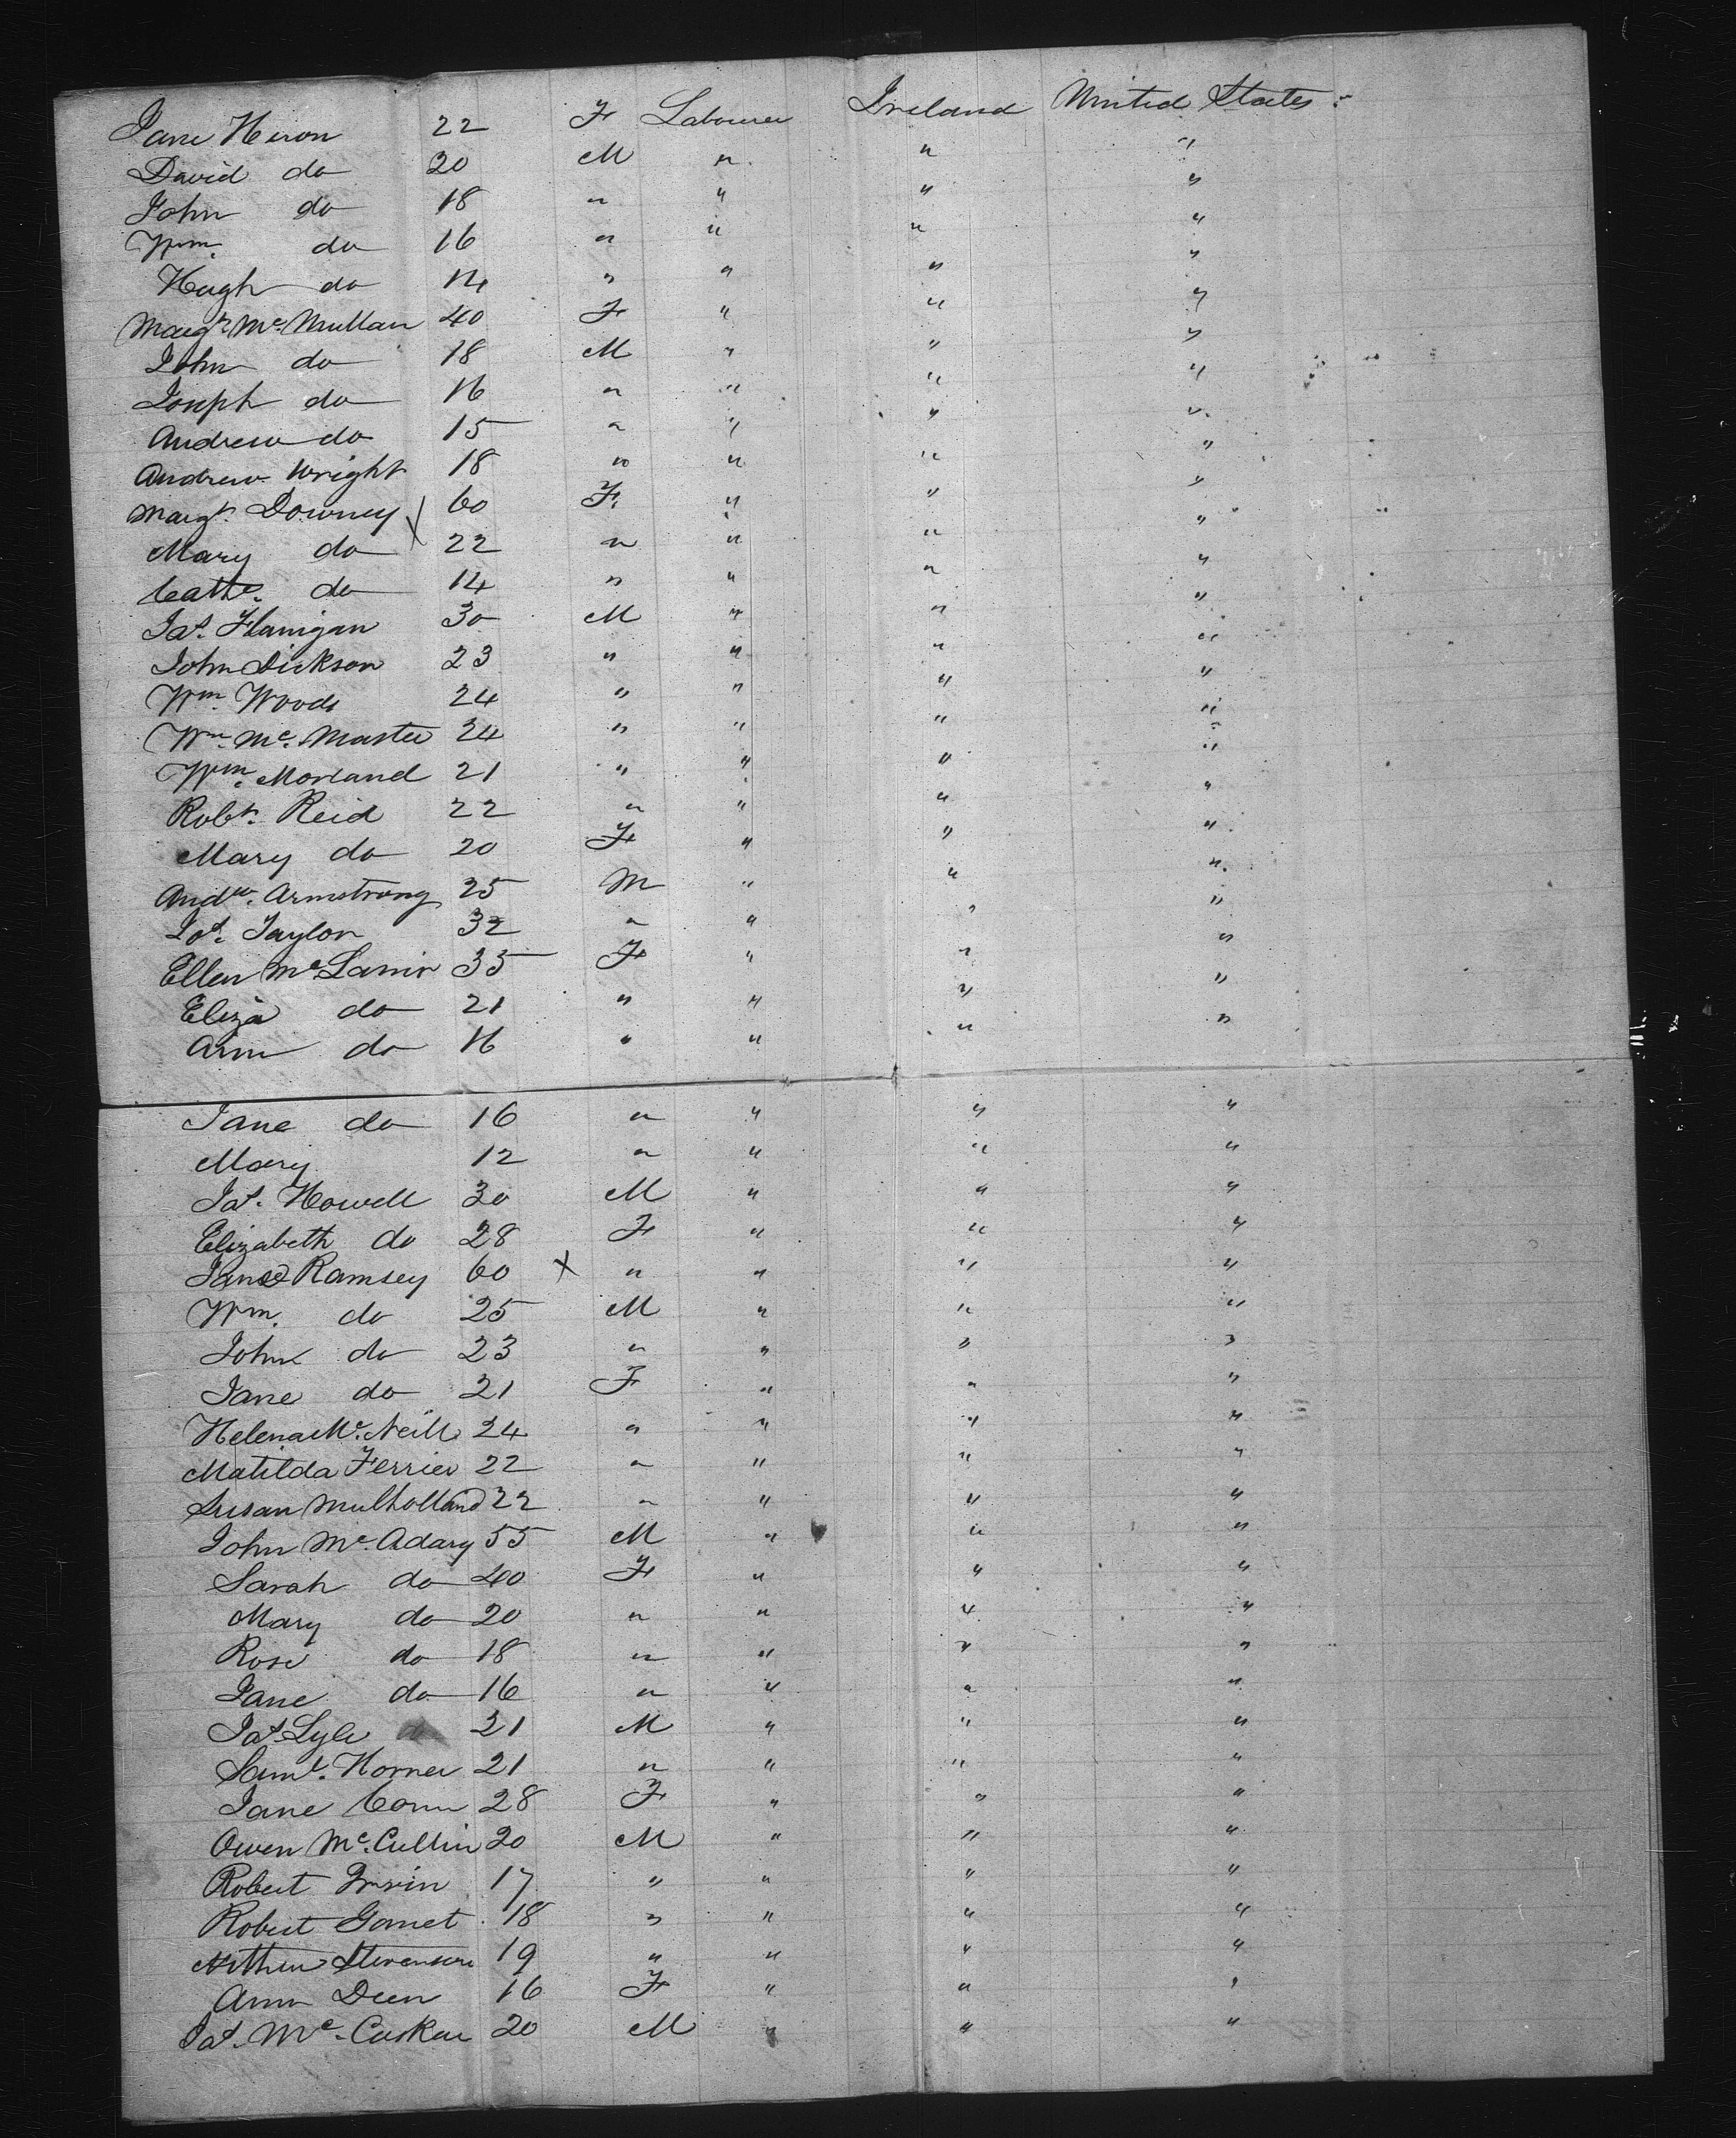 Jane Heron 22 F Labourer Ireland United States
David do 20 M " " "
John do 18 " " " "
Wm. do 16 " " " "
Hugh do 14 " " " "
Margt. Mc. Mullan 40 F " " "
John do 18 M " " "
Joseph do 16 " " " "
Andrew do 15 " " " "
Andrew Wright 18 " " " "
Margt. Downey X 60 F. " " "
Mary do 22 " " " "
Cathe. do 14 " " " "
Jas. Flanigan 30 M " " "
John Dickson 23 " " " "
Wm. Woods 24 " " " "
Wm. Mc. Master 24 " " " "
Wm. Morland 21 " " " "
Robt. Reid 22 " " " "
Mary do 20 F " " "
Andw. Armstrong 25 M " " "
Jos. Taylor 32 " " " "
Ellen Mc 35 F " " "
Eliza do 21 " " " "
Ann do 16 " " " "
Jane do 16 " " " "
Mary 12 " " " "
Jas. Howell 30 M " " "
Elizabeth do 28 F " " "
Jane Ramsey 60 X " " " "
Wm. do 25 M " " "
John do 23 " " " "
Jane do 21 F " " "
Helena Mc. Neill 24 " " " "
Matilda Ferrier 22 " " " "
Susan Mulholland 22 " " " "
John Mc. Adary 55 M " " "
Sarah do 40 F " " "
Mary do 20 " " " "
Rose do 18 " " " "
Jane do 16 " " " "
Jas. Lyle 21 M " " "
Saml. Horner 21 " " " "
Jane Conn 28 F " " "
Owen Mc. Cullin 20 M " " "
Robert Irwin 17 " " " "
Robert Gamet 18 " " " "
Arthur Stevenson 19 " " " "
Ann Deen 16 F " " "
Jas. Mc. Cusker 20 M " " "